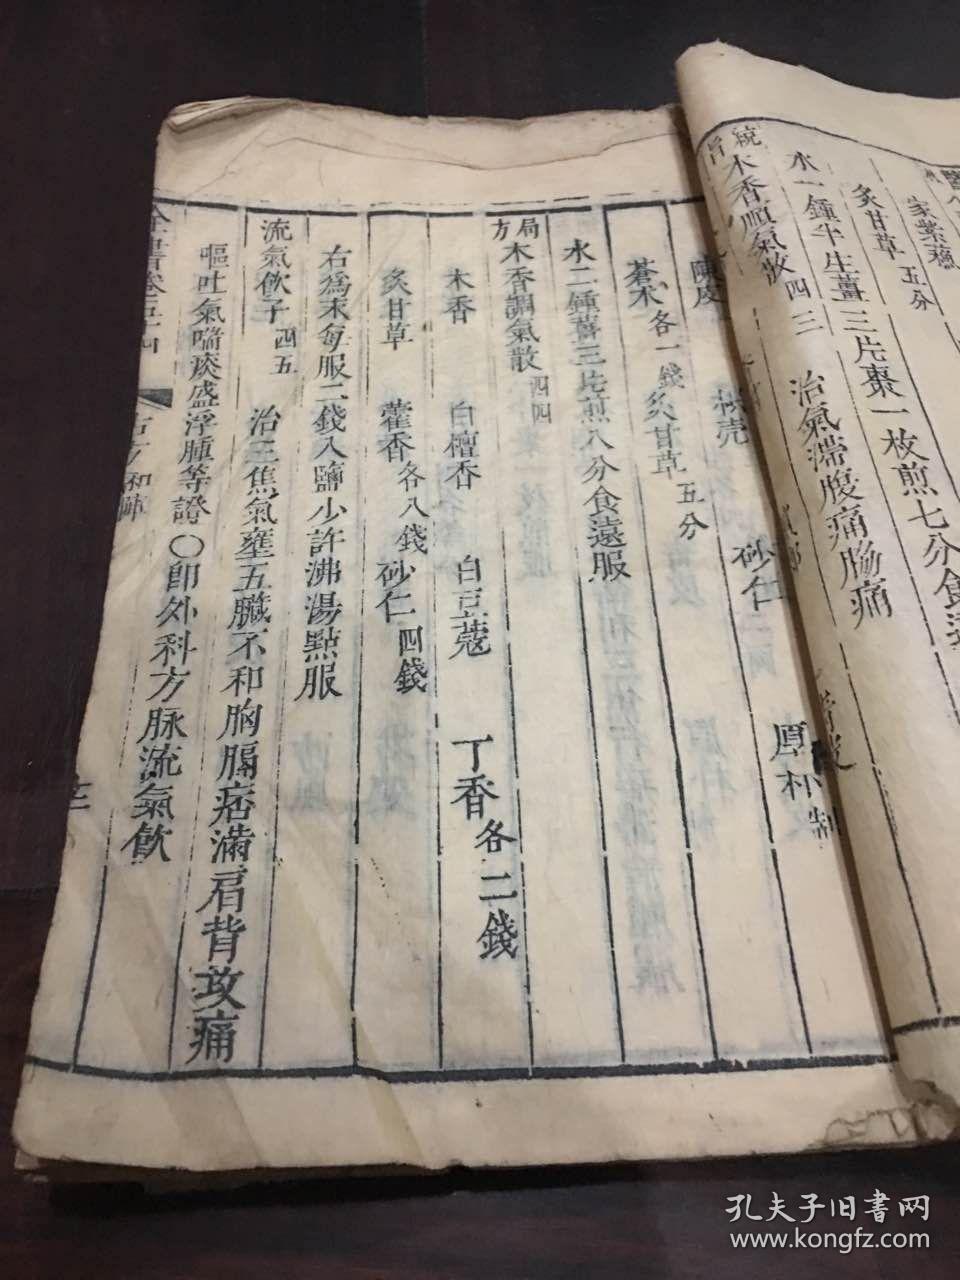 家紫蘇
炙甘草五分
水一鍾半生薑三片棗一枚煎七分食遠
統旨木香順氣散四三 治氣滯腹痛脇痛
砂仁 厚朴制
陳皮 枳壳
蒼朮各一錢炙甘草五分
水二鍾薑三片煎八分食遠服
局方木香調氣散四四
木香 白檀香 白豆蔻 丁香各二錢
炙甘草 藿香各八錢砂仁四錢
右爲末每服二錢入鹽少許沸湯點服
流氣飲子四五 治三焦氣壅五臟不和胸膈痞滿肩背攻痛
嘔吐氣喘痰盛浮腫等證〇卽外科方脉流氣飲
全書卷五十四 古方和陣
孔夫子旧書网
www.kongfz.com